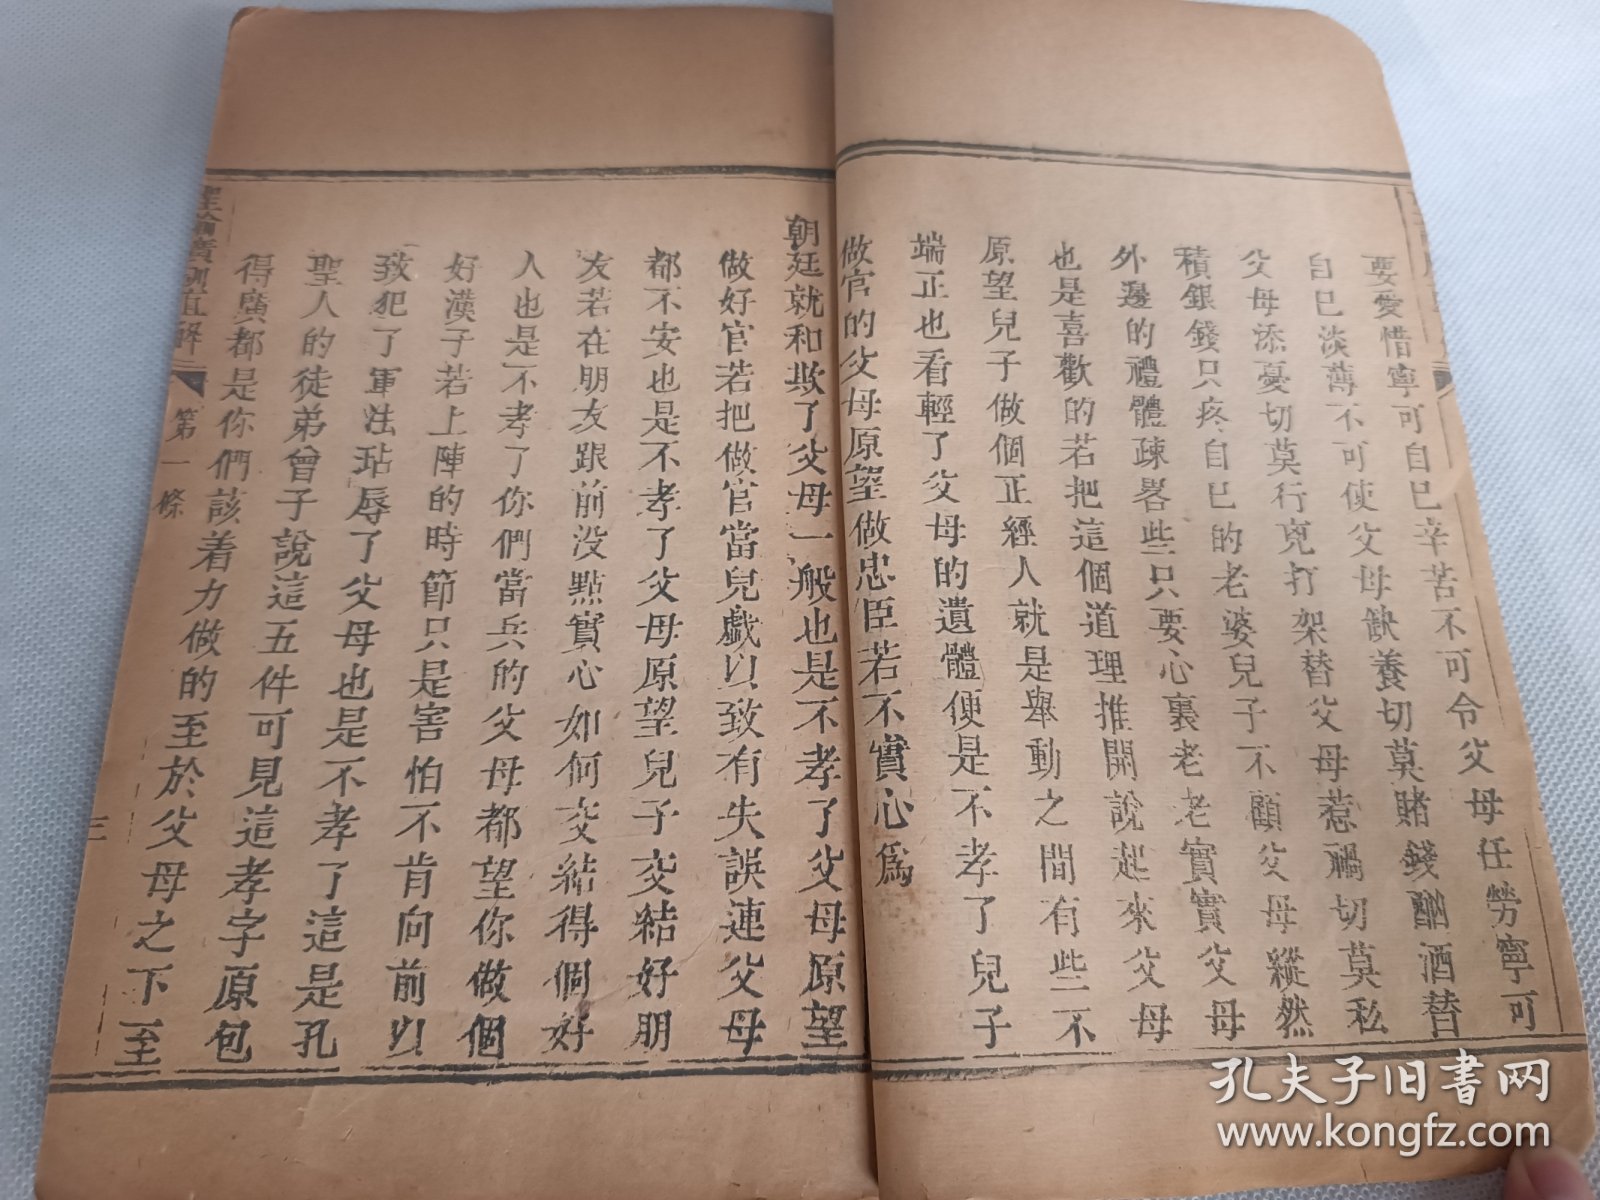 要愛惜寧可自巳辛苦不可令父母任勞寧可
自巳淡薄不可使父母缺養切莫賭錢酗酒替
父母添憂切莫行兇打架替父母惹禍切莫私
積銀錢只疼自巳的老婆兒子不顧父母縱然
外邊的禮體疎畧些只要心裏老老實實父母
也是喜歡的若把這個道理推開說起來父母
原望兒子做個正經人就是舉動之間有些不
端正也看輕了父母的遺體便是不孝了兒子
做官的父母原望做忠臣若不實心爲
朝廷就和欺了父母一般也是不孝了父母原望
做好官若把做官當兒戲以致有失誤連父母
都不安也是不孝了父母原望兒子交結好朋
友若在朋友跟前没點實心如何交結得個好
人也是不孝了你們當兵的父母都望你做個
好漢子若上陣的時節只是害怕不肯向前以
致犯了軍法玷辱了父母也是不孝了這是孔
聖人的徒弟曾子說這五件可見這孝字原包
得廣都是你們該着力做的至於父母之下至
聖諭廣訓直解 第一條 三
孔夫子旧書网
www.kongfz.com